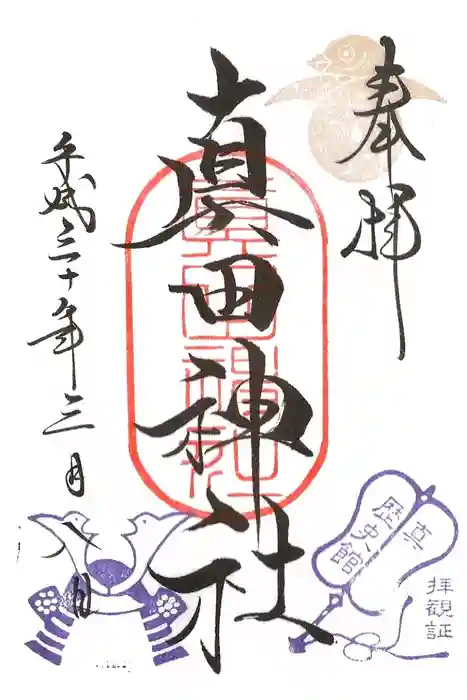 奉拝
眞田神社
平成三十年三月
八日
真田
歴史館
拝観証